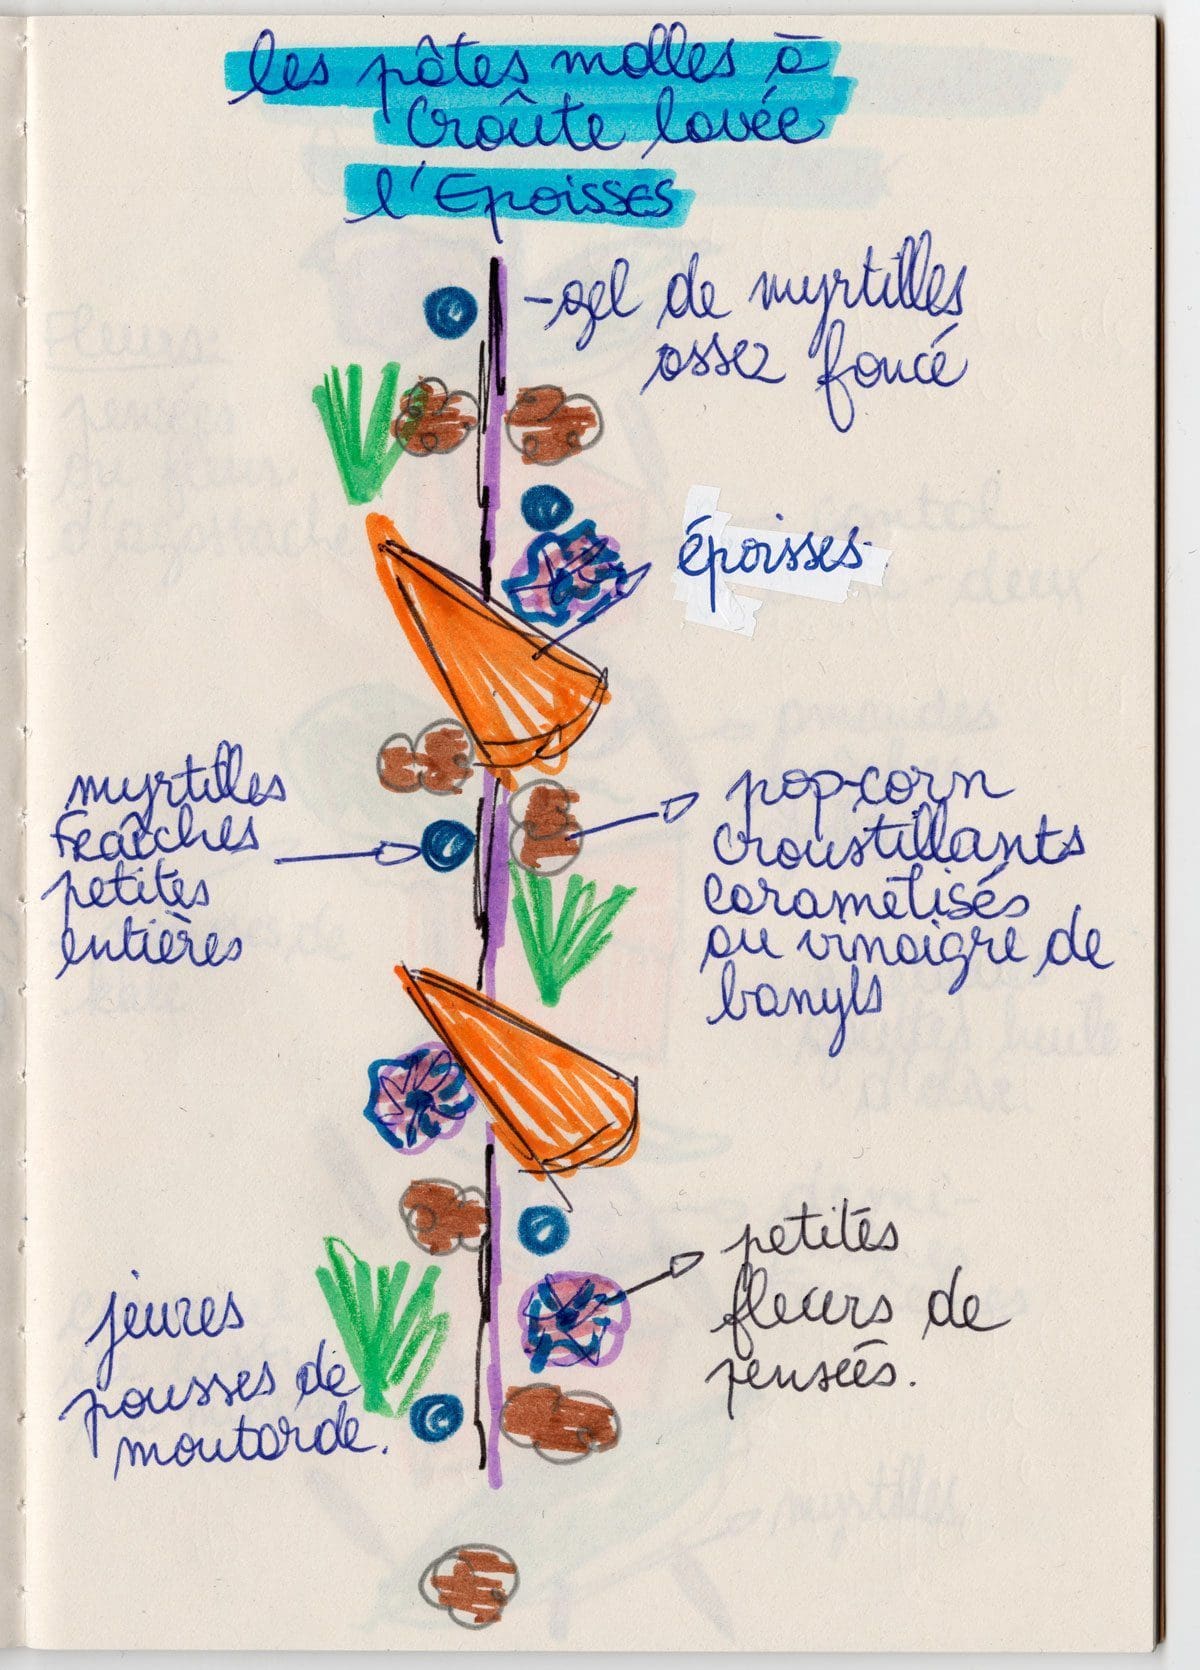 les pâtes molles à
croûte lavée
l'Epoisses
-gel de myrtilles
assez foncé
époisses
myrtilles
fraîches
petites
entières
pop-corn
croustillants
caramélisés
au vinaigre de
banyls
petites
fleurs de
pensées.
jeunes
pousses de
moutarde.